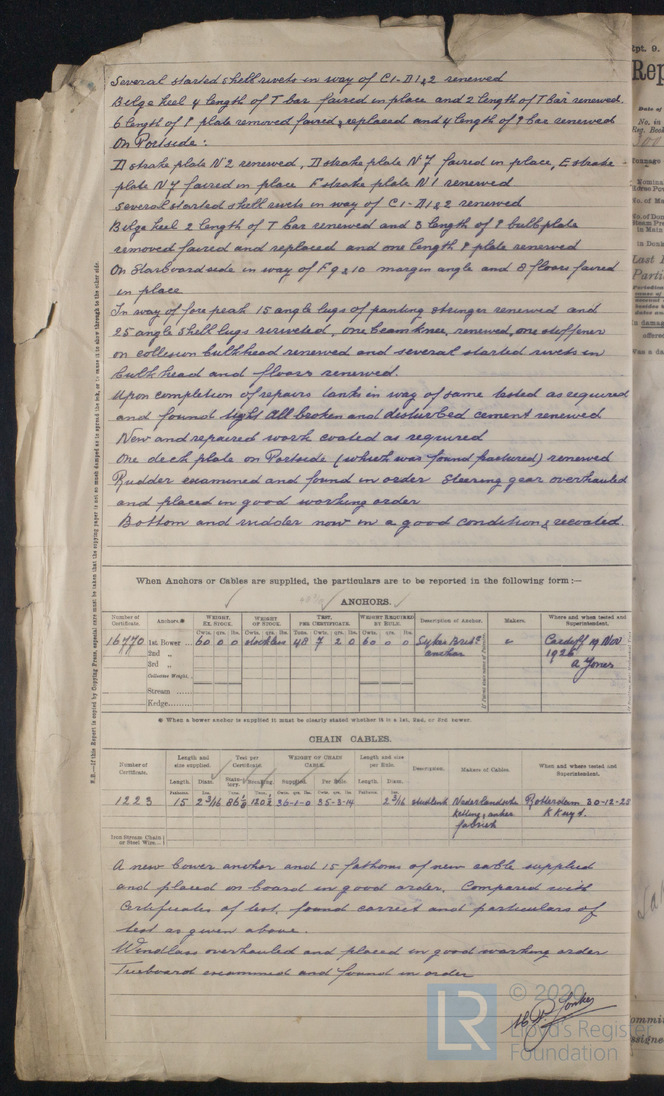 Several started shell rivets in way of C1-D1&2 renewed
Bilge keel 4 length of T bar faired in place and 2 length of T bar renewed.
6 length of P plate removed faired & replaced and 4 length of P bar renewed
On Portside:
D strake plate N2 renewed, D strake plate N7 faired in place, E strake -
plate N7 faired in place F strake plate N1 renewed
Several started shell rivets in way of C1-D1&2 renewed
Bilge keel 2 length of T bar renewed and 3 length of P bulbplate
removed faired and replaced and one length P plate renewed
On Starboard side in way of F 9 & 10 margin angle and 8 floors faired
in place
In way of fore peak 15 angle lugs of panting stringer renewed and
25 angle shell lugs rerivetted, one beam knee, renewed, one stiffener
on collesion bulkhead renewed and several started rivets in
bulkhead and floors renewed.
Upon completion of repairs tanks in way of same tested as required
and found tight All broken and disturbed cement renewed
New and repaired work coated as required
One deck plate on Portside (which was found fractured) renewed
Rudder examined and found in order Steering gear overhauled
and placed in good working order
Bottom and rudder now in a good condition & recoated.
When Anchors or Cables are supplied, the particulars are to be reported in the following form :—
ANCHORS.
Number of Certificate. Anchors.* WEIGHT. EX. STOCK. WEIGHT OF STOCK. TEST, PER CERTIFICATE. WEIGHT REQUIRED BY RULE. Description of Anchor. Makers. Where and when tested and Superintendent.
Cwts. qrs. lbs. Cwts. qrs. lbs. Tons. Cwts. qrs. lbs. Cwts. qrs. lbs.
16770 1st. Bower 60 0 0 stockless 48 7 2 0 60 0 0 Cardiff 19 Nov
2nd „ anchor 1925
3rd „ A Jones
Collective Weight.
Stream
Kedge
* When a bower anchor is supplied it must be clearly stated whether it is a 1st, 2nd, or 3rd bower.
CHAIN CABLES.
Number of Certificate. Length and size supplied. Test per Certificate. WEIGHT OF CHAIN CABLE. Length and size per Rule. Description. Makers of Cables. Where and when tested and Superintendent.
Length. Diam. Statutory. Breaking. Supplied. Per Rule. Length. Diam.
1223 15 2 3/16 36-1-0 35-3-14 2 3/16 studlink Nederlandsche Rotterdam 30-12-25
Ketting & anker
fabriek
Iron Stream Chain or Steel Wire
A new bower anchor and 15 fathoms of new cable supplied
and placed on board in good order. Compared with
Certificates of test, found correct and particulars of
test as given above.
Windlass overhauled and placed in good working order
Freeboard examined and found in order
N.B.—If this Report is copied by Copying Press, especial care must be taken that the copying paper is not so much damped as to spread the ink, or to cause it to show through to the other side.
© 2020
LR
Lloyd's Register
Foundation
Rpt. 9.
Rep
Date of
No. in
Reg. Book